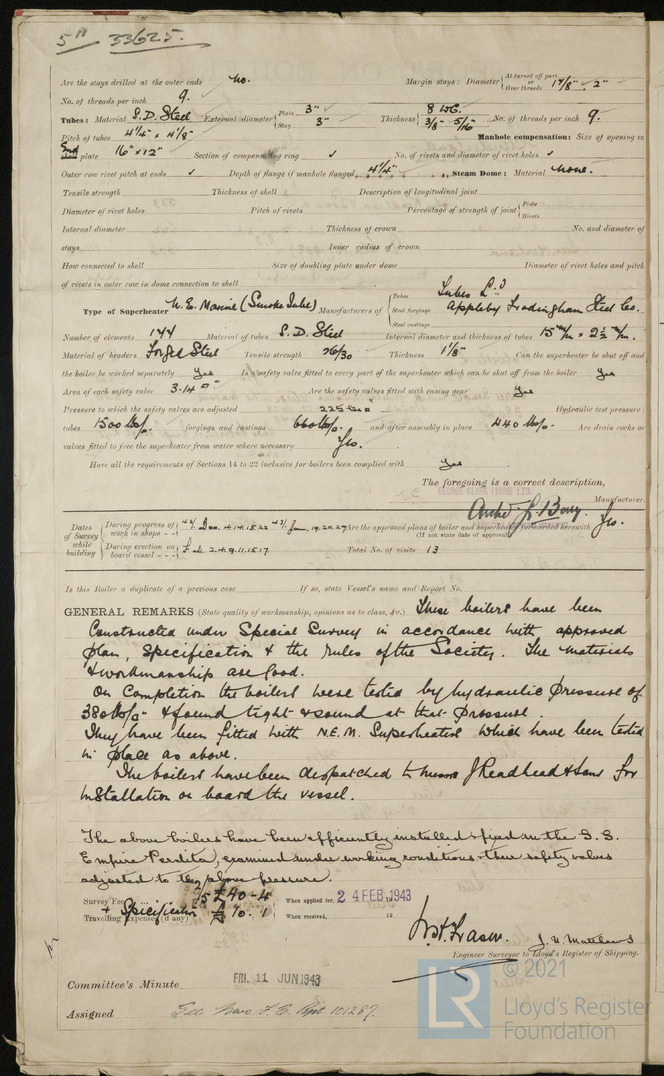 5A 33625.
Are the stays drilled at the outer ends No. Margin stays: Diameter { At turned off part or Over threads 1 7/8" . 2"
No. of threads per inch 9.
Tubes: Material S.D. Steel External diameter { Plain 3" Stay 3" Thickness { 8 WG. 3/8 5/16" No. of threads per inch 9.
Pitch of tubes 4 1/4" x 4 1/8" Manhole compensation: Size of opening in
End plate 16" x 12" Section of compensating ring ✓ No. of rivets and diameter of rivet holes ✓
Outer row rivet pitch at ends ✓ Depth of flange if manhole flanged 4 1/4" Steam Dome: Material None.
Tensile strength Thickness of shell Description of longitudinal joint
Diameter of rivet holes Pitch of rivets Percentage of strength of joint { Plate Rivets
Internal diameter Thickness of crown No. and diameter of
stays Inner radius of crown
How connected to shell Size of doubling plate under dome Diameter of rivet holes and pitch
of rivets in outer row in dome connection to shell
Type of Superheater N.E. Marine (Smoke Tube) Manufacturers of { Tubes Tubes Ld
Steel forgings Appleby Frodingham Steel Co.
Steel castings
Number of elements 144 Material of tubes S.D. Steel Internal diameter and thickness of tubes 15 m/m x 2 1/2 m/m.
Material of headers Forged Steel Tensile strength 26/30 Thickness 1 1/8" Can the superheater be shut off and
the boiler be worked separately Yes Is a safety valve fitted to every part of the superheater which can be shut off from the boiler Yes
Area of each safety valve 3.14 □" Are the safety valves fitted with easing gear Yes
Pressure to which the safety valves are adjusted 225 lbs □" Hydraulic test pressure:
tubes 1500 lbs/□. forgings and castings 660 lbs/□. and after assembly in place 440 lbs/□. Are drain cocks or
valves fitted to free the superheater from water where necessary Yes.
Have all the requirements of Sections 14 to 22 inclusive for boilers been complied with Yes
The foregoing is a correct description,
GEORGE CLARK (1938) LTD.
Manufacturer.
Dates of Survey while building { During progress of work in shops - - Dec. 4.14.15.22 Jan. 19.20.27 Are the approved plans of boiler and superheater forwarded herewith Yes.
(If not state date of approval.)
During erection on board vessel - - - Feb. 2.4.9.11.15.17 Total No. of visits 13
Is this Boiler a duplicate of a previous case If so, state Vessel's name and Report No.
GENERAL REMARKS (State quality of workmanship, opinions as to class, &c.) These boilers have been
constructed under Special Survey in accordance with approved
plan, Specification & the rules of the Society. The materials
& workmanship are good.
On completion the boilers were tested by hydraulic pressure of
380 lbs/□" & found tight & sound at that pressure.
They have been fitted with N.E.M. Superheaters which have been tested
in place as above.
The boilers have been despatched to Messrs J Readhead & Sons for
installation on board the vessel.
The above boilers have been efficiently installed & fixed in the S.S.
Empire Perdita, examined under working conditions & their safety valves
adjusted to the above pressure.
Survey Fee £40 - 4 When applied for, 24 FEB 1943
+ Specification
Travelling Expenses (if any) £ 10 : 1 When received, 19
J. H. Matthews
Engineer Surveyor to Lloyd's Register of Shipping.
Committee's Minute FRI. 11 JUN 1943
Assigned See Nwc F.E. Rpt 101287.
LR
© 2021
Lloyd's Register
Foundation